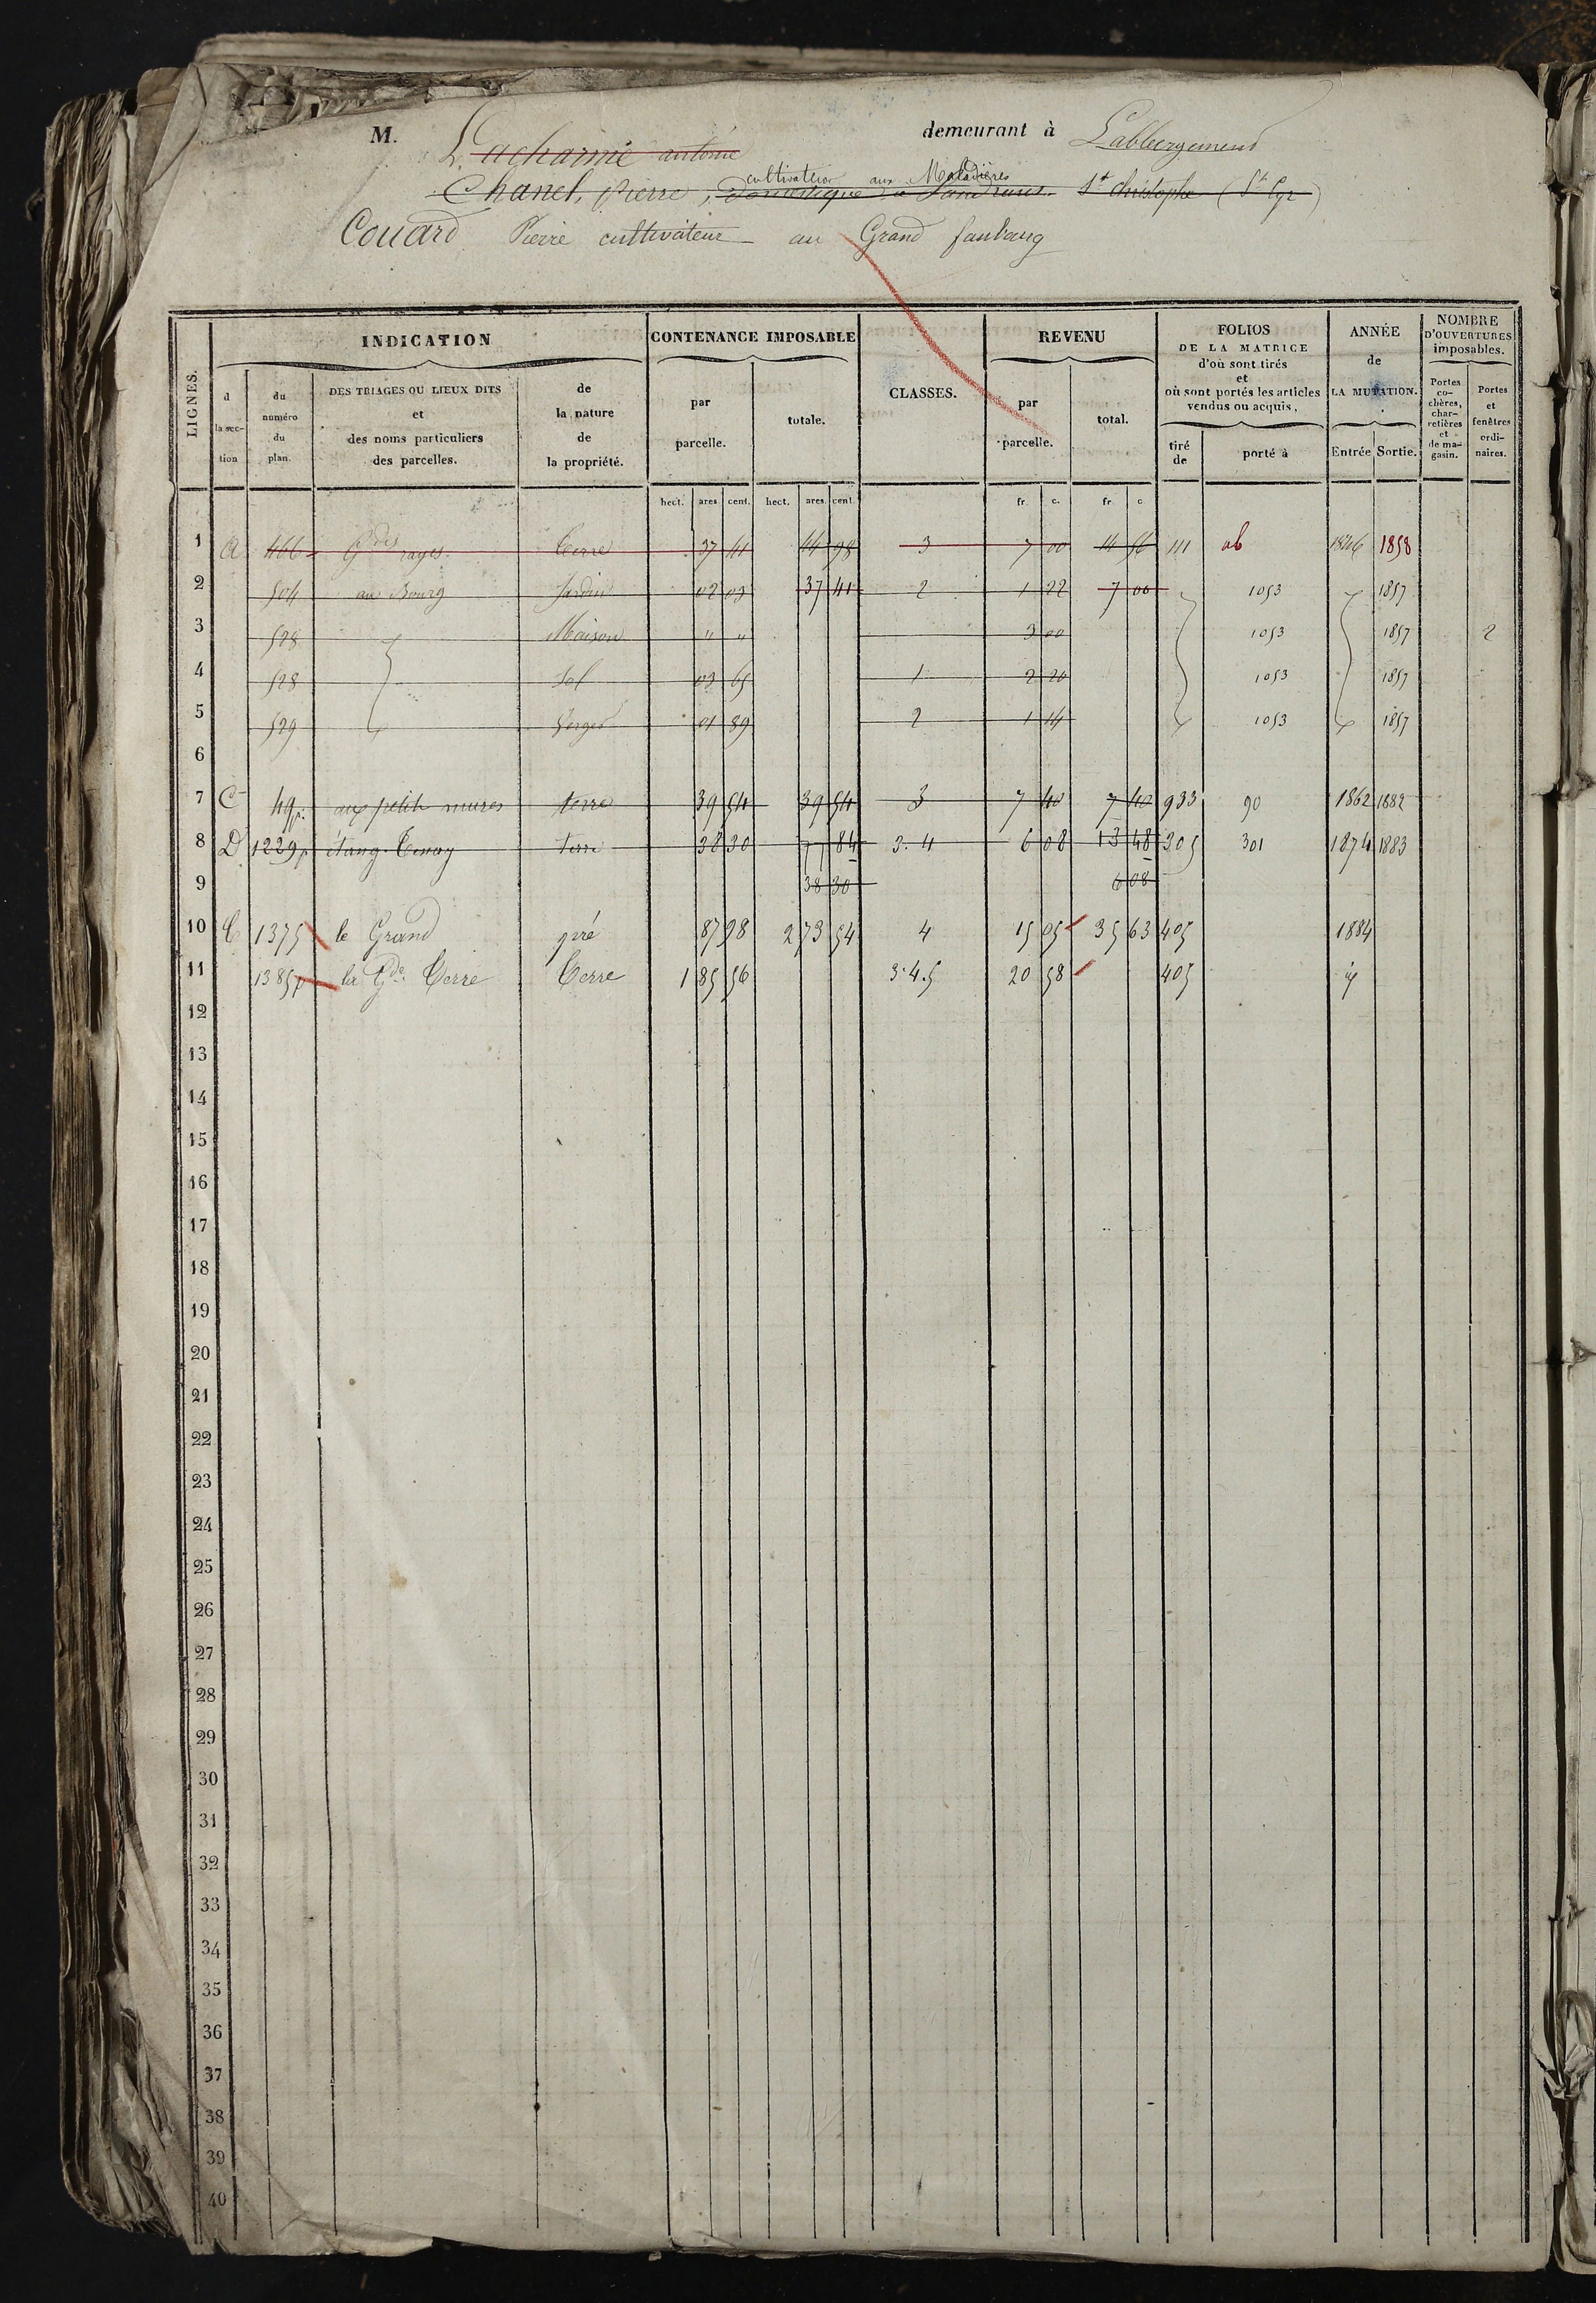 M. Lacharme antoine demeurant à L'abbergement
cultivateur aux Maladières
Chanel, Pierre, Domestique à St christophe (St Cyr)
Couard Pierre cultivateur au Grand faubourg
LIGNES. INDICATION CONTENANCE IMPOSABLE CLASSES. REVENU FOLIOS DE LA MATRICE d'où sont tirés et où sont portés les articles vendus ou acquis, ANNÉE de LA MUTATION. NOMBRE D'OUVERTURES imposables.
d la section du numéro du plan. DES TRIAGES OU LIEUX DITS et des noms particuliers des parcelles. de la nature de la propriété. par parcelle. totale. par parcelle. total. tiré de porté à Entrée Sortie. Portes cochères, charretières et de magasin. Portes et fenêtres ordinaires.
hect. ares cent. hect. ares cent. fr. c. fr. c.
1 A 466 Gdes rayes. Terre 37 41 44 98 3 7 00 14 56 111 ab 1846 1858
2 504 au Bourg Jardin 02 03 37 41 2 1 22 7 00 1053 1857
3 528 Maison " " 3 00 1053 1857 2
4 528 Sol 03 65 1 2 20 1053 1857
5 529 Verger 01 89 2 1 14 1053 1857
6
7 C 49p. aux petits mures terre 39 54 39 54 3 7 40 7 40 933 90 1862 1882
8 D 1229p étang Tenay terre 38 30 77 84 3. 4 6 08 13 48 305 301 1874 1883
9 38 30 6 08
10 C 1375 le Grand pré 87 98 2 73 54 4 15 05 35 63 405 1884
11 1385p la Gde Terre Terre 1 85 56 3.4.5 20 58 405 iy
12
13
14
15
16
17
18
19
20
21
22
23
24
25
26
27
28
29
30
31
32
33
34
35
36
37
38
39
40